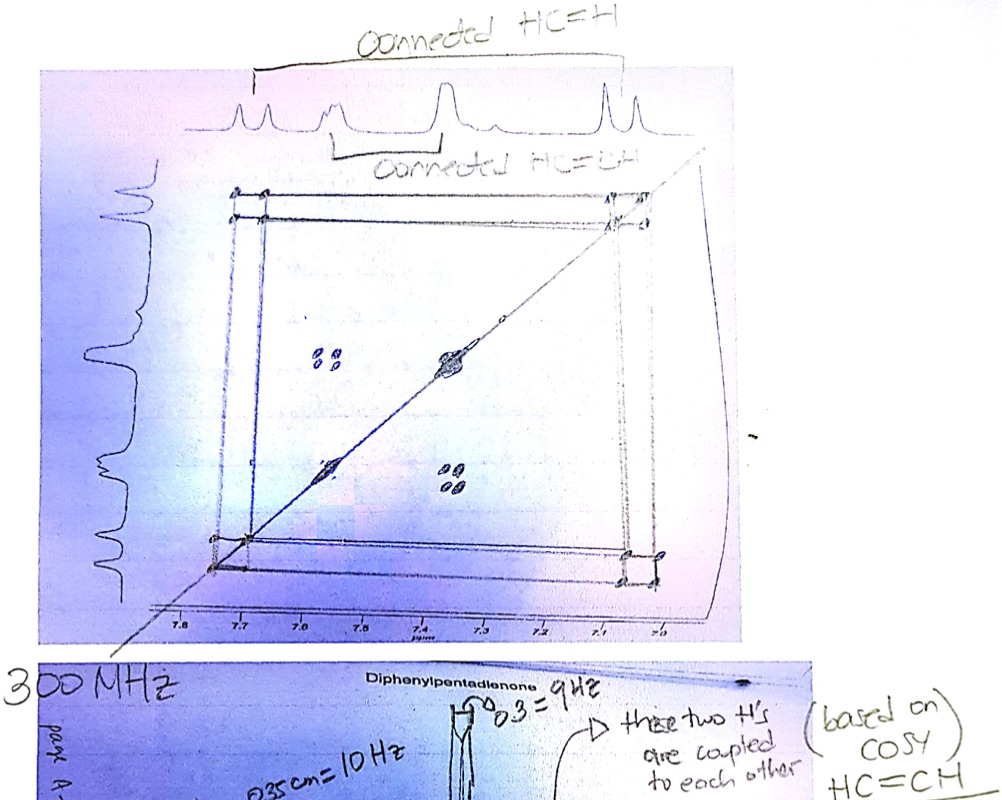 Connected HC=H
Connected HC=CH
7.8 7.7 7.6 7.5 7.4 7.3 7.2 7.1 7.0
ppm
300 MHz
Diphenylpentadienone
0.3 = 9Hz
035 cm = 10 Hz
these two H's
are coupled
to each other
(based on)
COSY
HC=CH
page A-